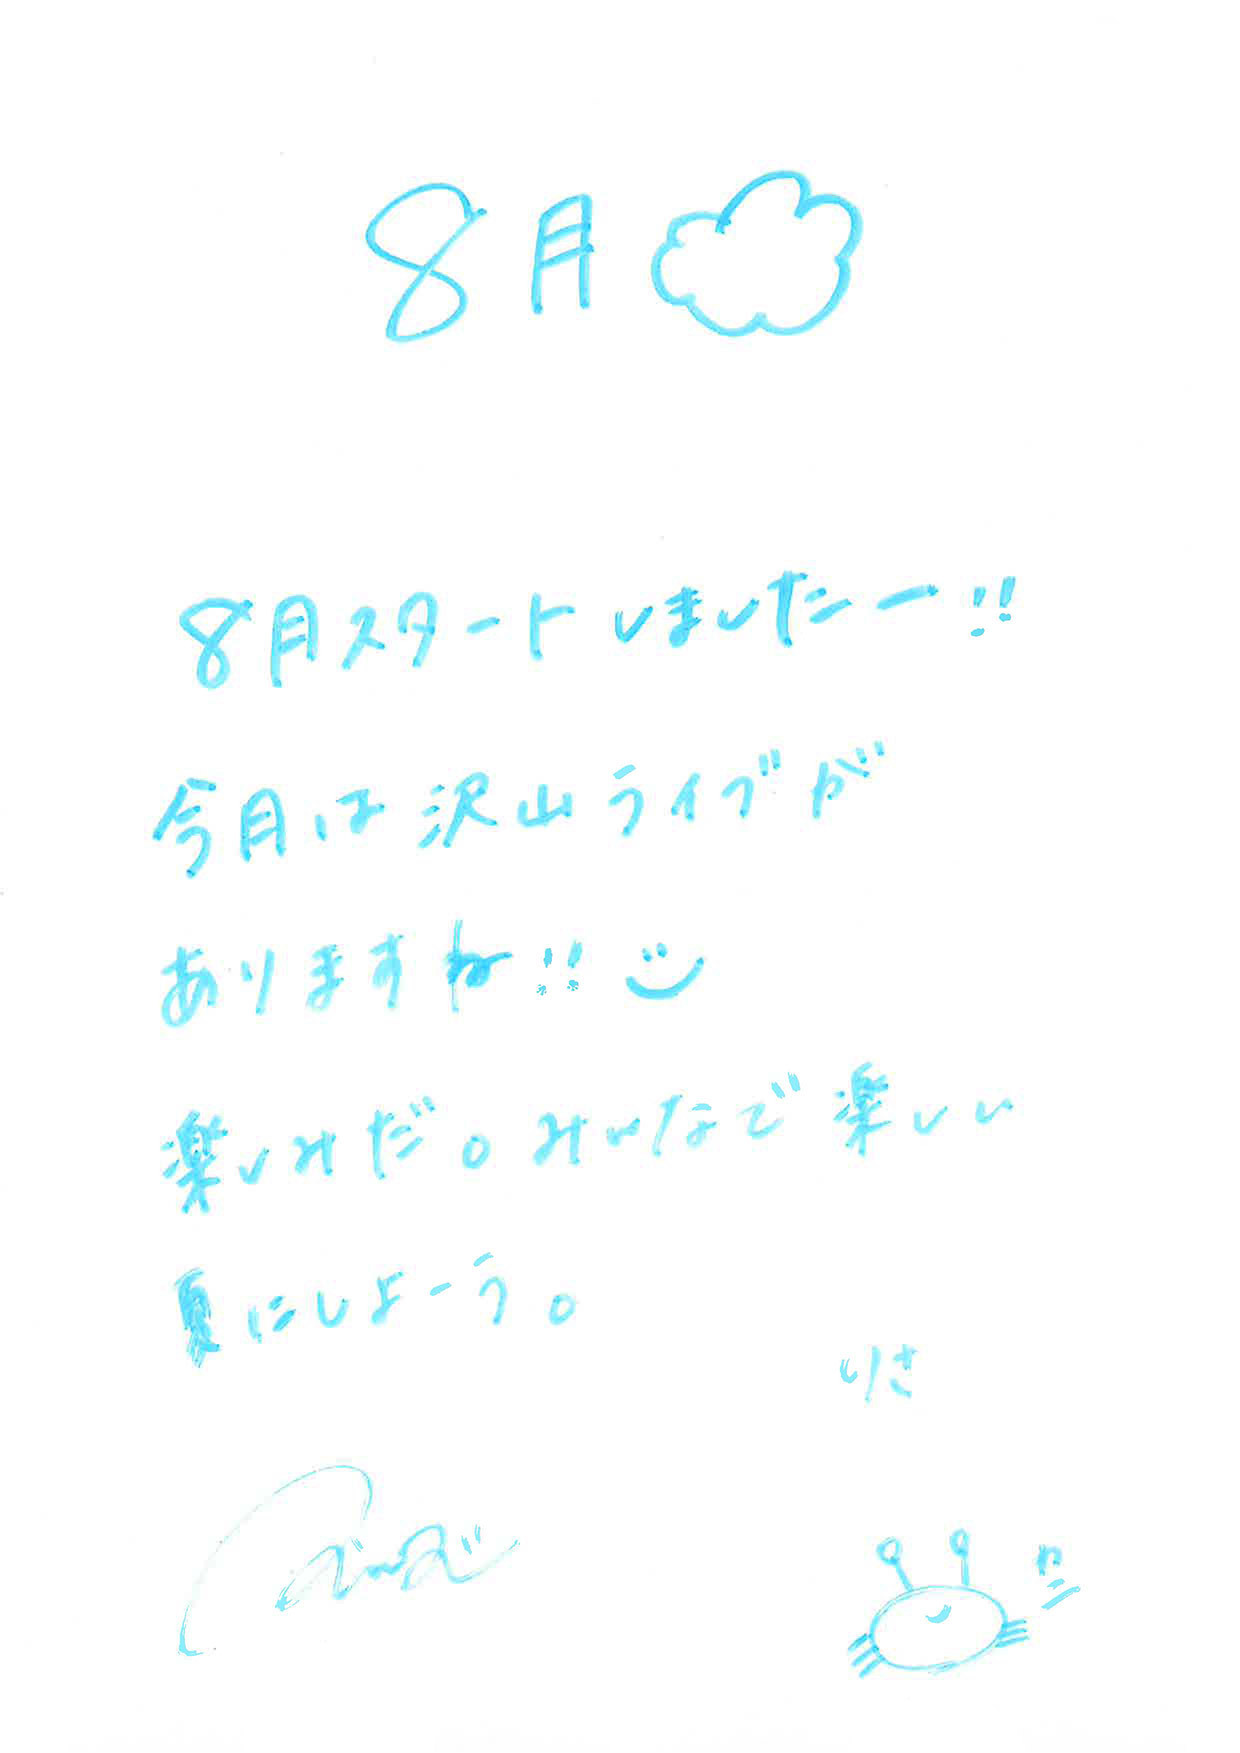 8月
8月スタートしましたー!!
今月は沢山ライブが
ありますね!!
楽しみだ。みんなで楽しい
夏にしよーう。
りさ
カニ